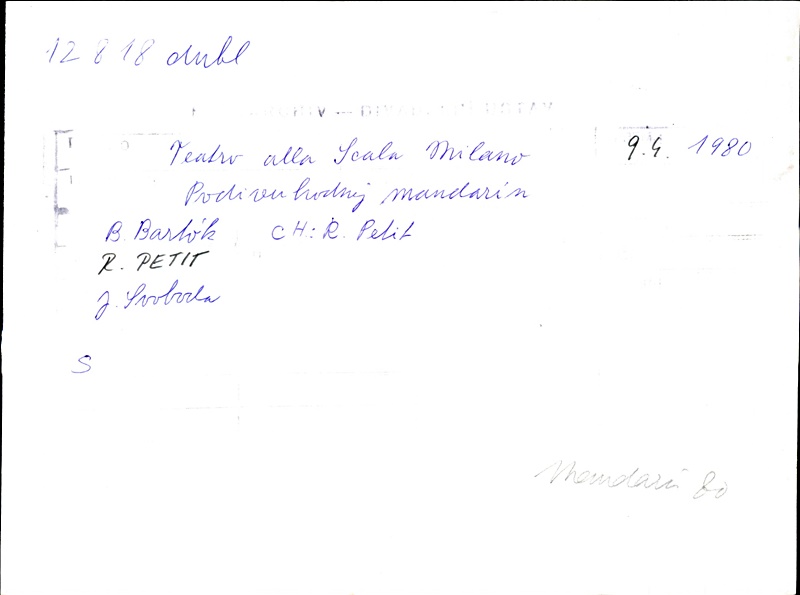 12 8 18 dubl
Teatro alla Scala Milano 9.4. 1980
Podivuhodný mandarin
B. Bartók CH: R. Petit
R. PETIT
J. Svoboda
S
Mandarin 80